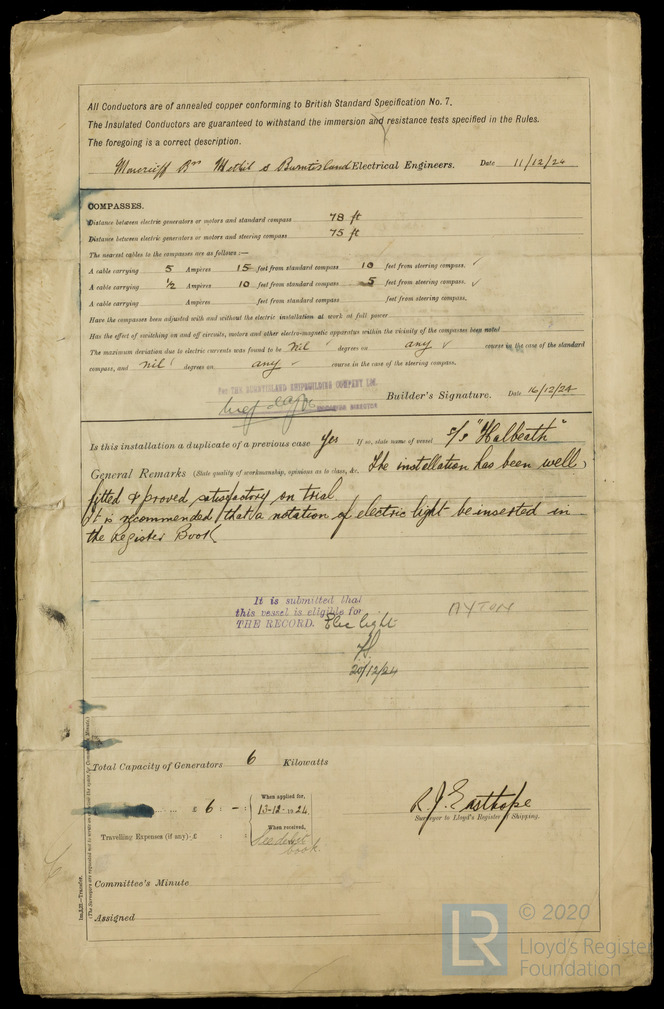 All Conductors are of annealed copper conforming to British Standard Specification No. 7.
The Insulated Conductors are guaranteed to withstand the immersion and resistance tests specified in the Rules.
The foregoing is a correct description.
Moncrieff Brs Methil & Burntisland Electrical Engineers. Date 11/12/24
COMPASSES.
Distance between electric generators or motors and standard compass 78 ft
Distance between electric generators or motors and steering compass 75 ft
The nearest cables to the compasses are as follows:—
A cable carrying 5 Ampères 15 feet from standard compass 10 feet from steering compass.
A cable carrying ½ Ampères 10 feet from standard compass 5 feet from steering compass.
A cable carrying Ampères feet from standard compass feet from steering compass.
Have the compasses been adjusted with and without the electric installation at work at full power
Has the effect of switching on and off circuits, motors and other electro-magnetic apparatus within the vicinity of the compasses been noted
The maximum deviation due to electric currents was found to be nil degrees on any course in the case of the standard
compass, and nil degrees on any course in the case of the steering compass.
For THE BURNTISLAND SHIPBUILDING COMPANY LTD.
DIRECTOR
Builder's Signature. Date 16/12/24
Is this installation a duplicate of a previous case Yes If so, state name of vessel s/s "Halbeath"
General Remarks (State quality of workmanship, opinions as to class, &c. The installation has been well
fitted & proved satisfactory on trial.
It is recommended that a notation of electric light be inserted in
the Register Book
It is submitted that
this vessel is eligible for
THE RECORD. Elec light
AYTON
20/12/24
Total Capacity of Generators 6 Kilowatts
£ 6 : - :
When applied for,
13-12-1924.
When received,
Travelling Expenses (if any) £ : :
R. J. Easthope
Surveyor to Lloyd's Register of Shipping.
Committee's Minute
Assigned
© 2020
LR
Lloyd's Register
Foundation